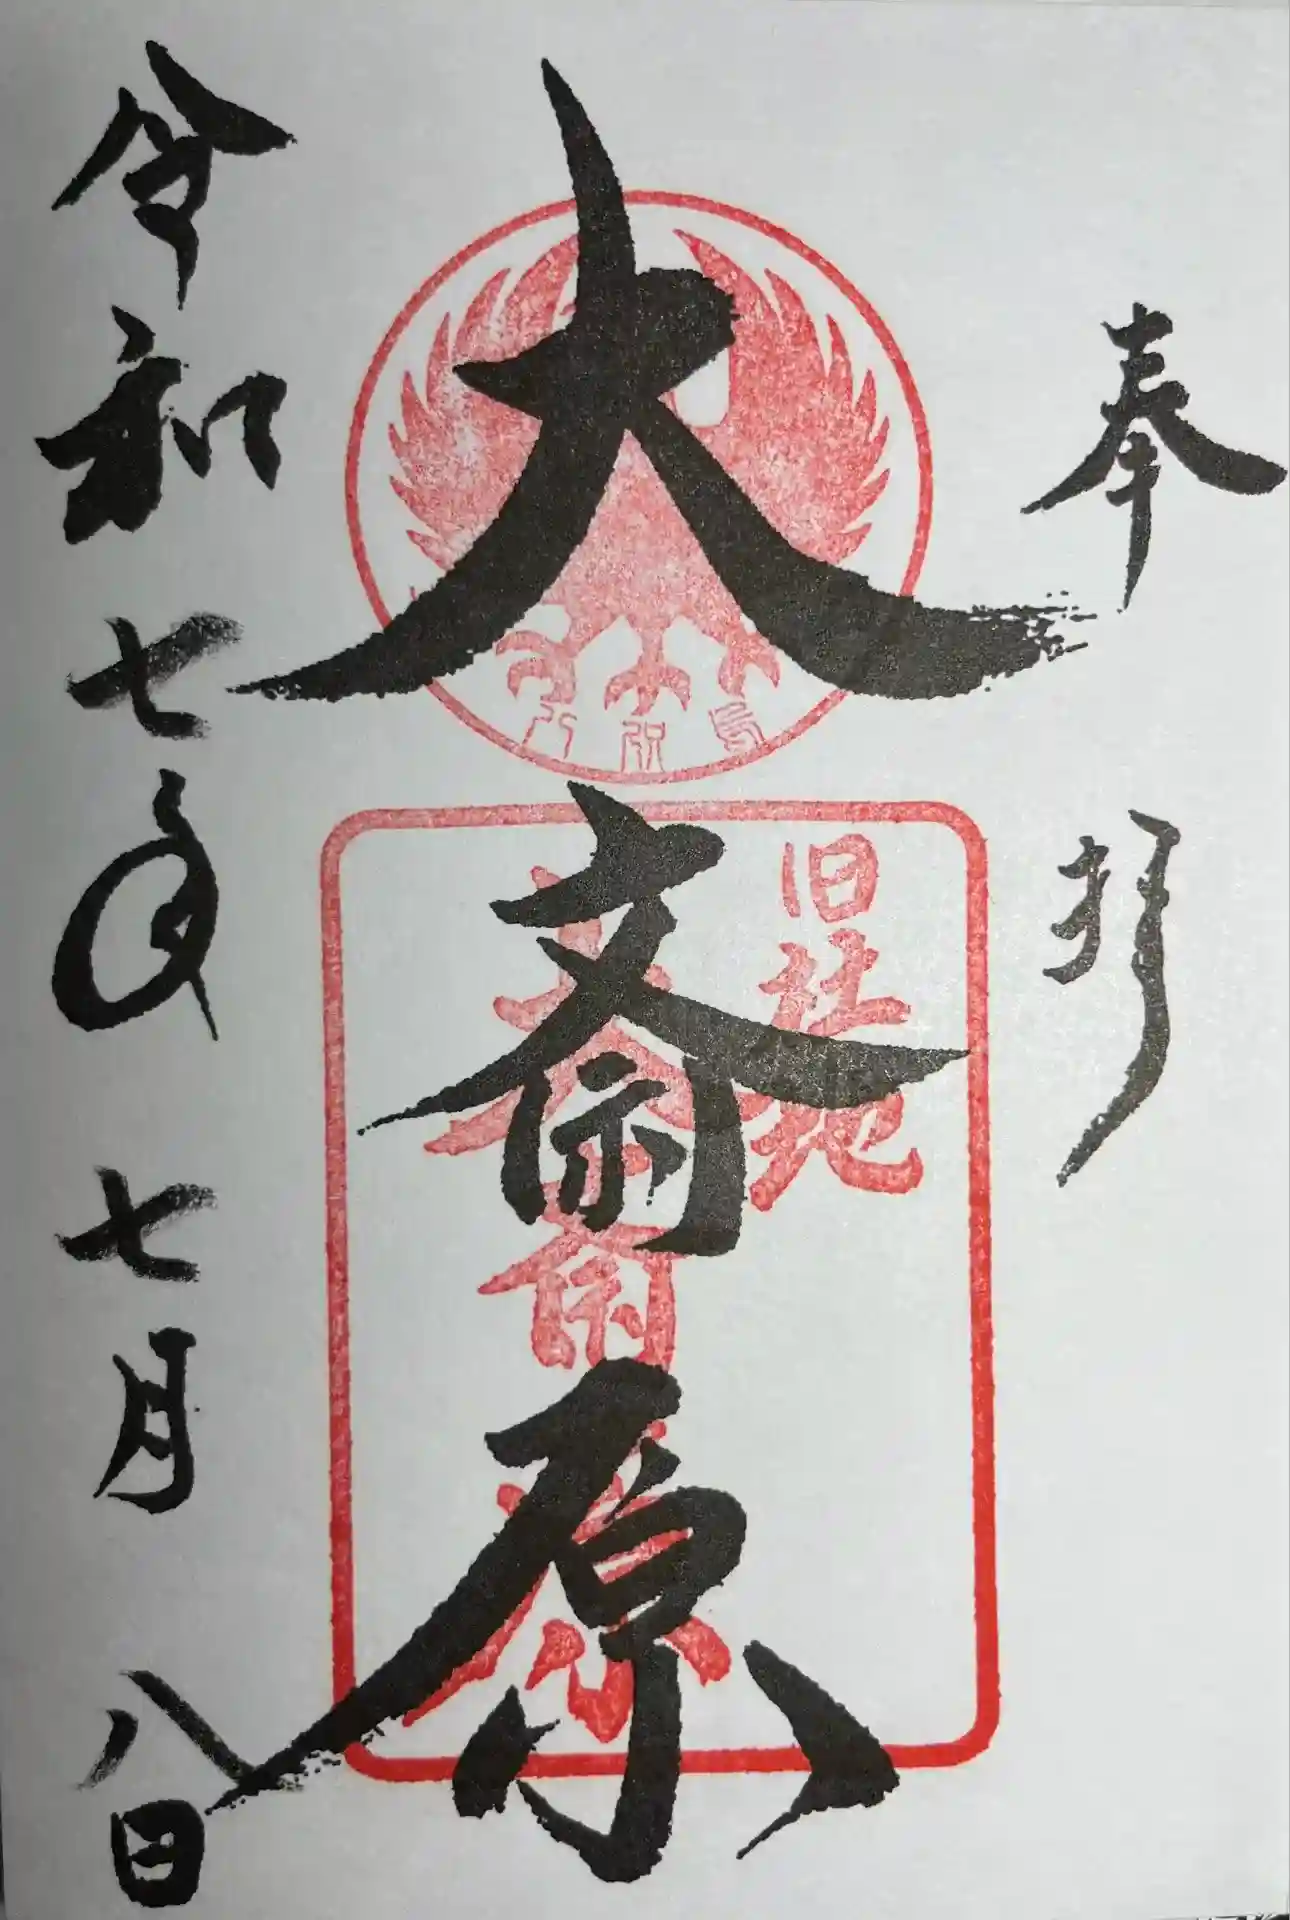 奉拝
大斎原
旧社地
大斎原
八咫烏
令和七年七月八日